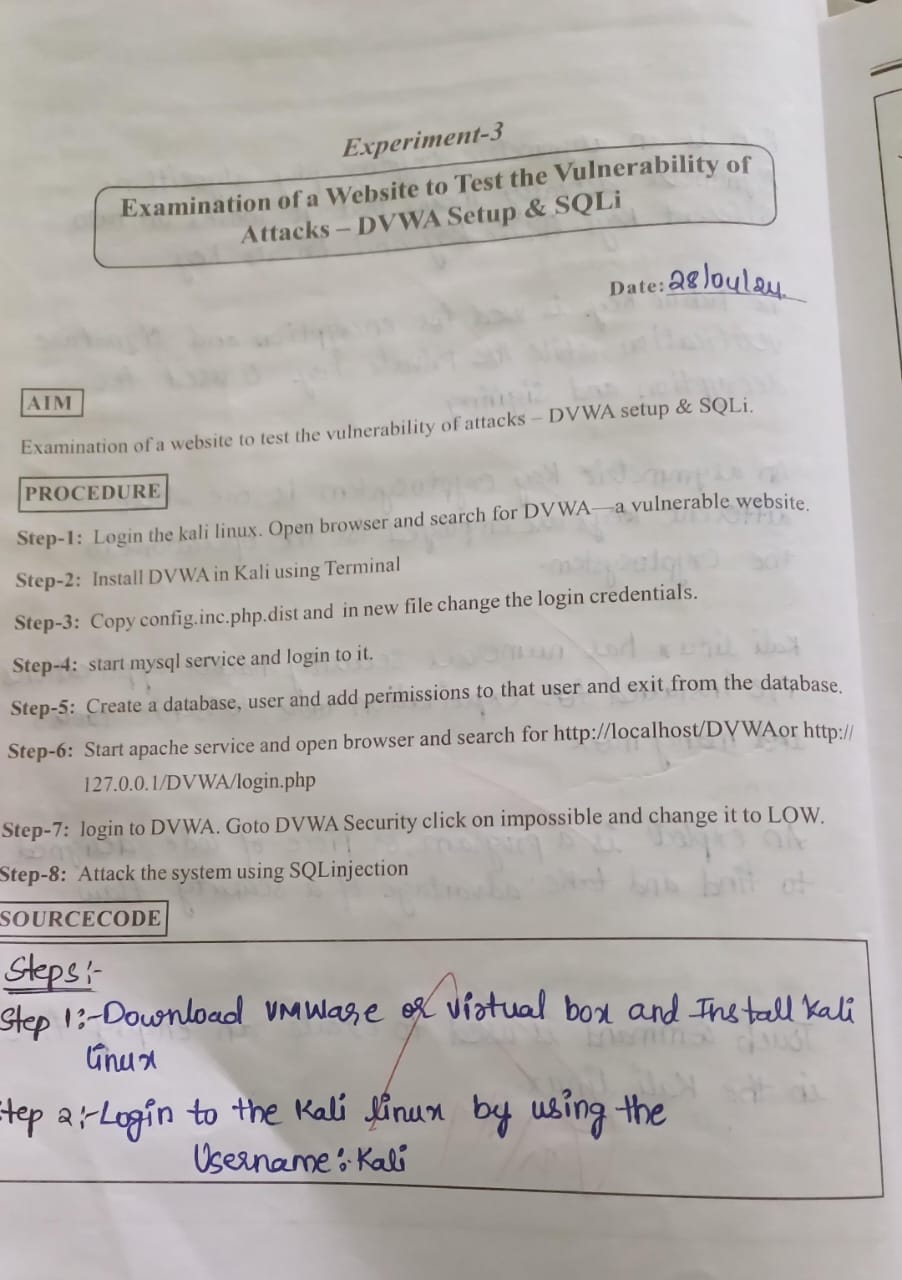 Experiment-3
Examination of a Website to Test the Vulnerability of
Attacks – DVWA Setup & SQLi
Date: 28/04/24
AIM
Examination of a website to test the vulnerability of attacks – DVWA setup & SQLi.
PROCEDURE
Step-1: Login the kali linux. Open browser and search for DVWA—a vulnerable website.
Step-2: Install DVWA in Kali using Terminal
Step-3: Copy config.inc.php.dist and in new file change the login credentials.
Step-4: start mysql service and login to it.
Step-5: Create a database, user and add permissions to that user and exit from the database.
Step-6: Start apache service and open browser and search for http://localhost/DVWAor http://
127.0.0.1/DVWA/login.php
Step-7: login to DVWA. Goto DVWA Security click on impossible and change it to LOW.
Step-8: Attack the system using SQLinjection
SOURCECODE
Steps:-
Step 1:-Download VMWare or Virtual box and Install Kali
linux
Step 2:-Login to the Kali linux by using the
Username:-Kali